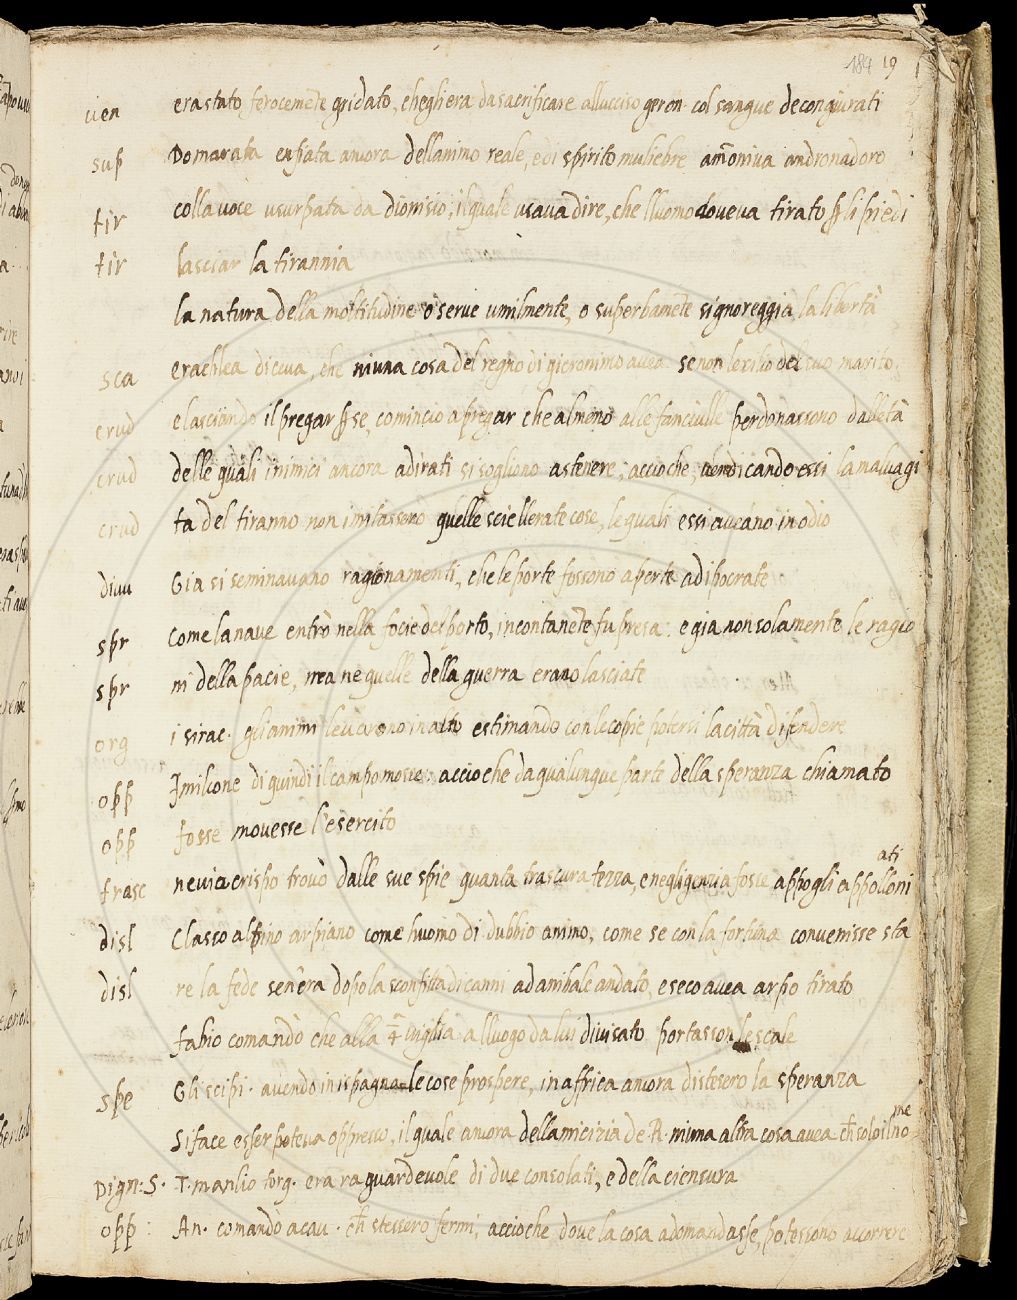 184 19
vien era stato ferocemẽte gridato, che gli era da sacrificare allucciso geron. col sangue de congiurati
sup Domarata enfiata ancora dellanimo reale, e di spirito muliebre am̃oniva andronadoro
tir colla voce usurpata da dionisio; il quale usava dire, che lluomo doveva tirato ꝑ li piedi
tir lasciar la tirannia
la natura della moltitudine o serve umilmente, o superbamẽte signoreggia la libertà
sca eraclea diceva, che niuna cosa del regno di gieronimo avea se non lexilio del suo marito
crud e lasciando il pregar ꝑ se, comincio a pregar che almeno alle fanciulle perdonassono dalletà
crud delle quali inimici ancora adirati si sogliono astenere; accioche, vendicando essi la malvagi
crud ta del tiranno non imitassero quelle sciellerate cose, le quali essi aveano in odio
divu Gia si seminavano ragionamenti, che le porte fossono aperte ad ipocrate
spr Come la nave entrò nella focie del porto, incontanẽte fu presa: e gia non solamente le ragio
spr ni della pacie, ma ne quelle della guerra erano lasciate
org i sirac. gli animi levarono in alto estimando con le copie potersi la città difendere
opp Imilcone di quindi il campo mosse: accioche da qualunque parte della speranza chiamato
opp fosse movesse l'esercito
ati
frasc nevia crispo trovò dalle sue spie quanta trascuratezza, e negligenzia fosse appo gli appolloni
disl Classo alpino arpiano come huomo di dubbio animo, come se con la fortuna convenisse sta
disl re la fede senẽra dopo la sconfitta di canni ad anibale andato, e seco avea arpo tirato
fabio comandò che alla 4ã vigilia al luogo da lui divisato portasson le scale
spe Gli scipi. avendo in ispagna le cose prospere, in affrica ancora distesero la speranza
me
Siface esser poteva oppresso, il quale ancora dellamicizia de R. niuna altra cosa avea cħ solo il no
Dign: S. T. manlio torq. era raguardevole di due consolati, e della ciensura
opp: An. comandò a cau. cħ stessero fermi, accioche dove la cosa adomandasse, potessono accorrere